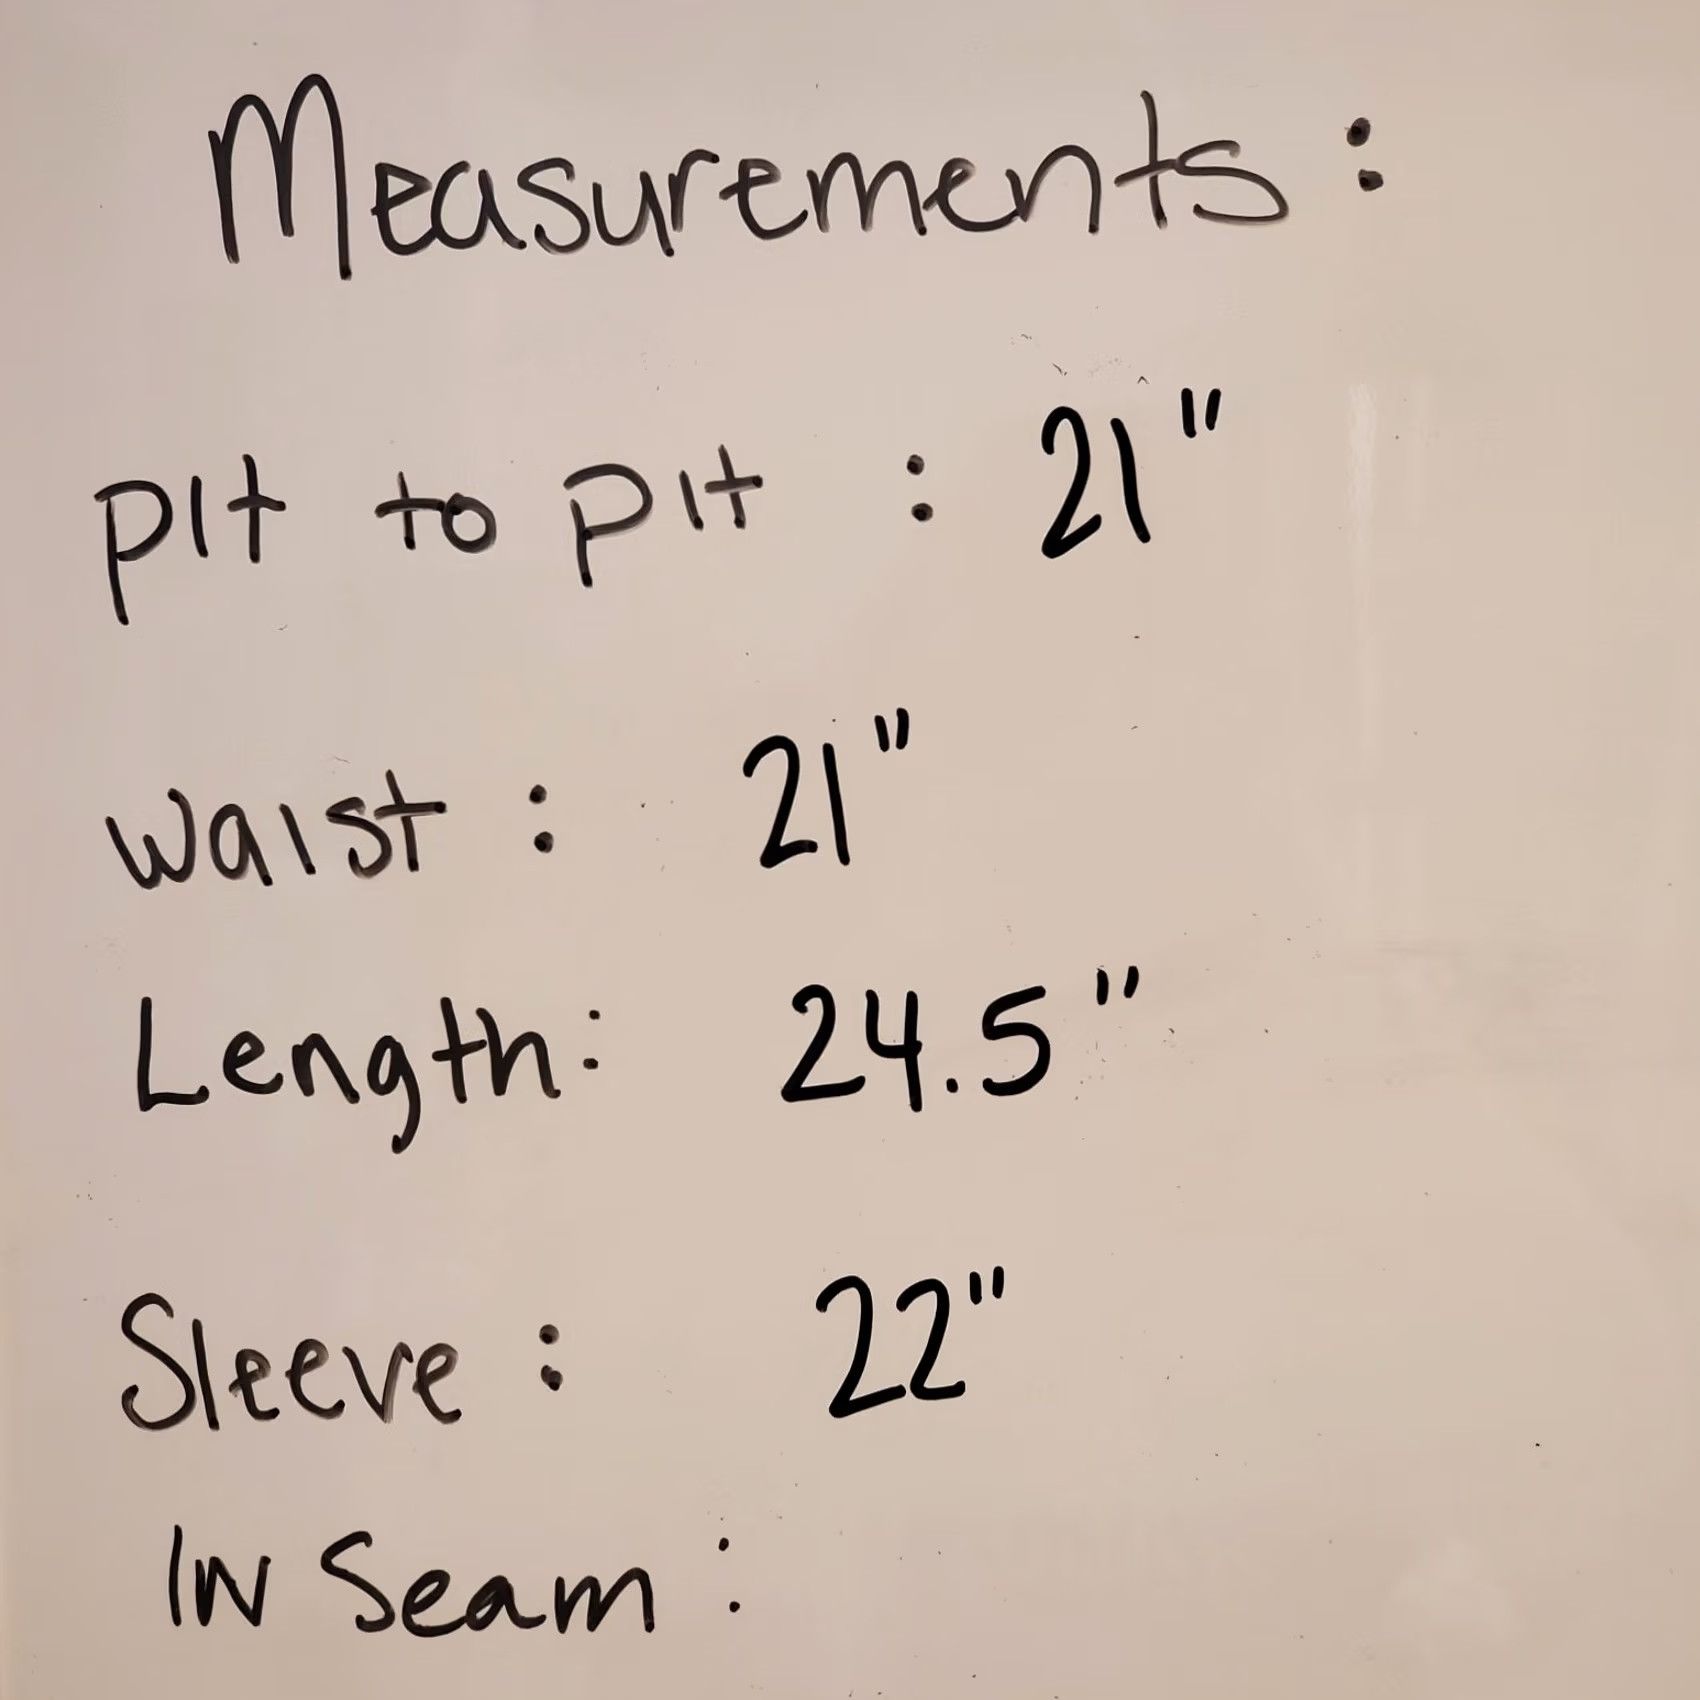 Measurements:
Pit to Pit : 21"
Waist : 21"
Length: 24.5"
Sleeve : 22"
IN Seam :